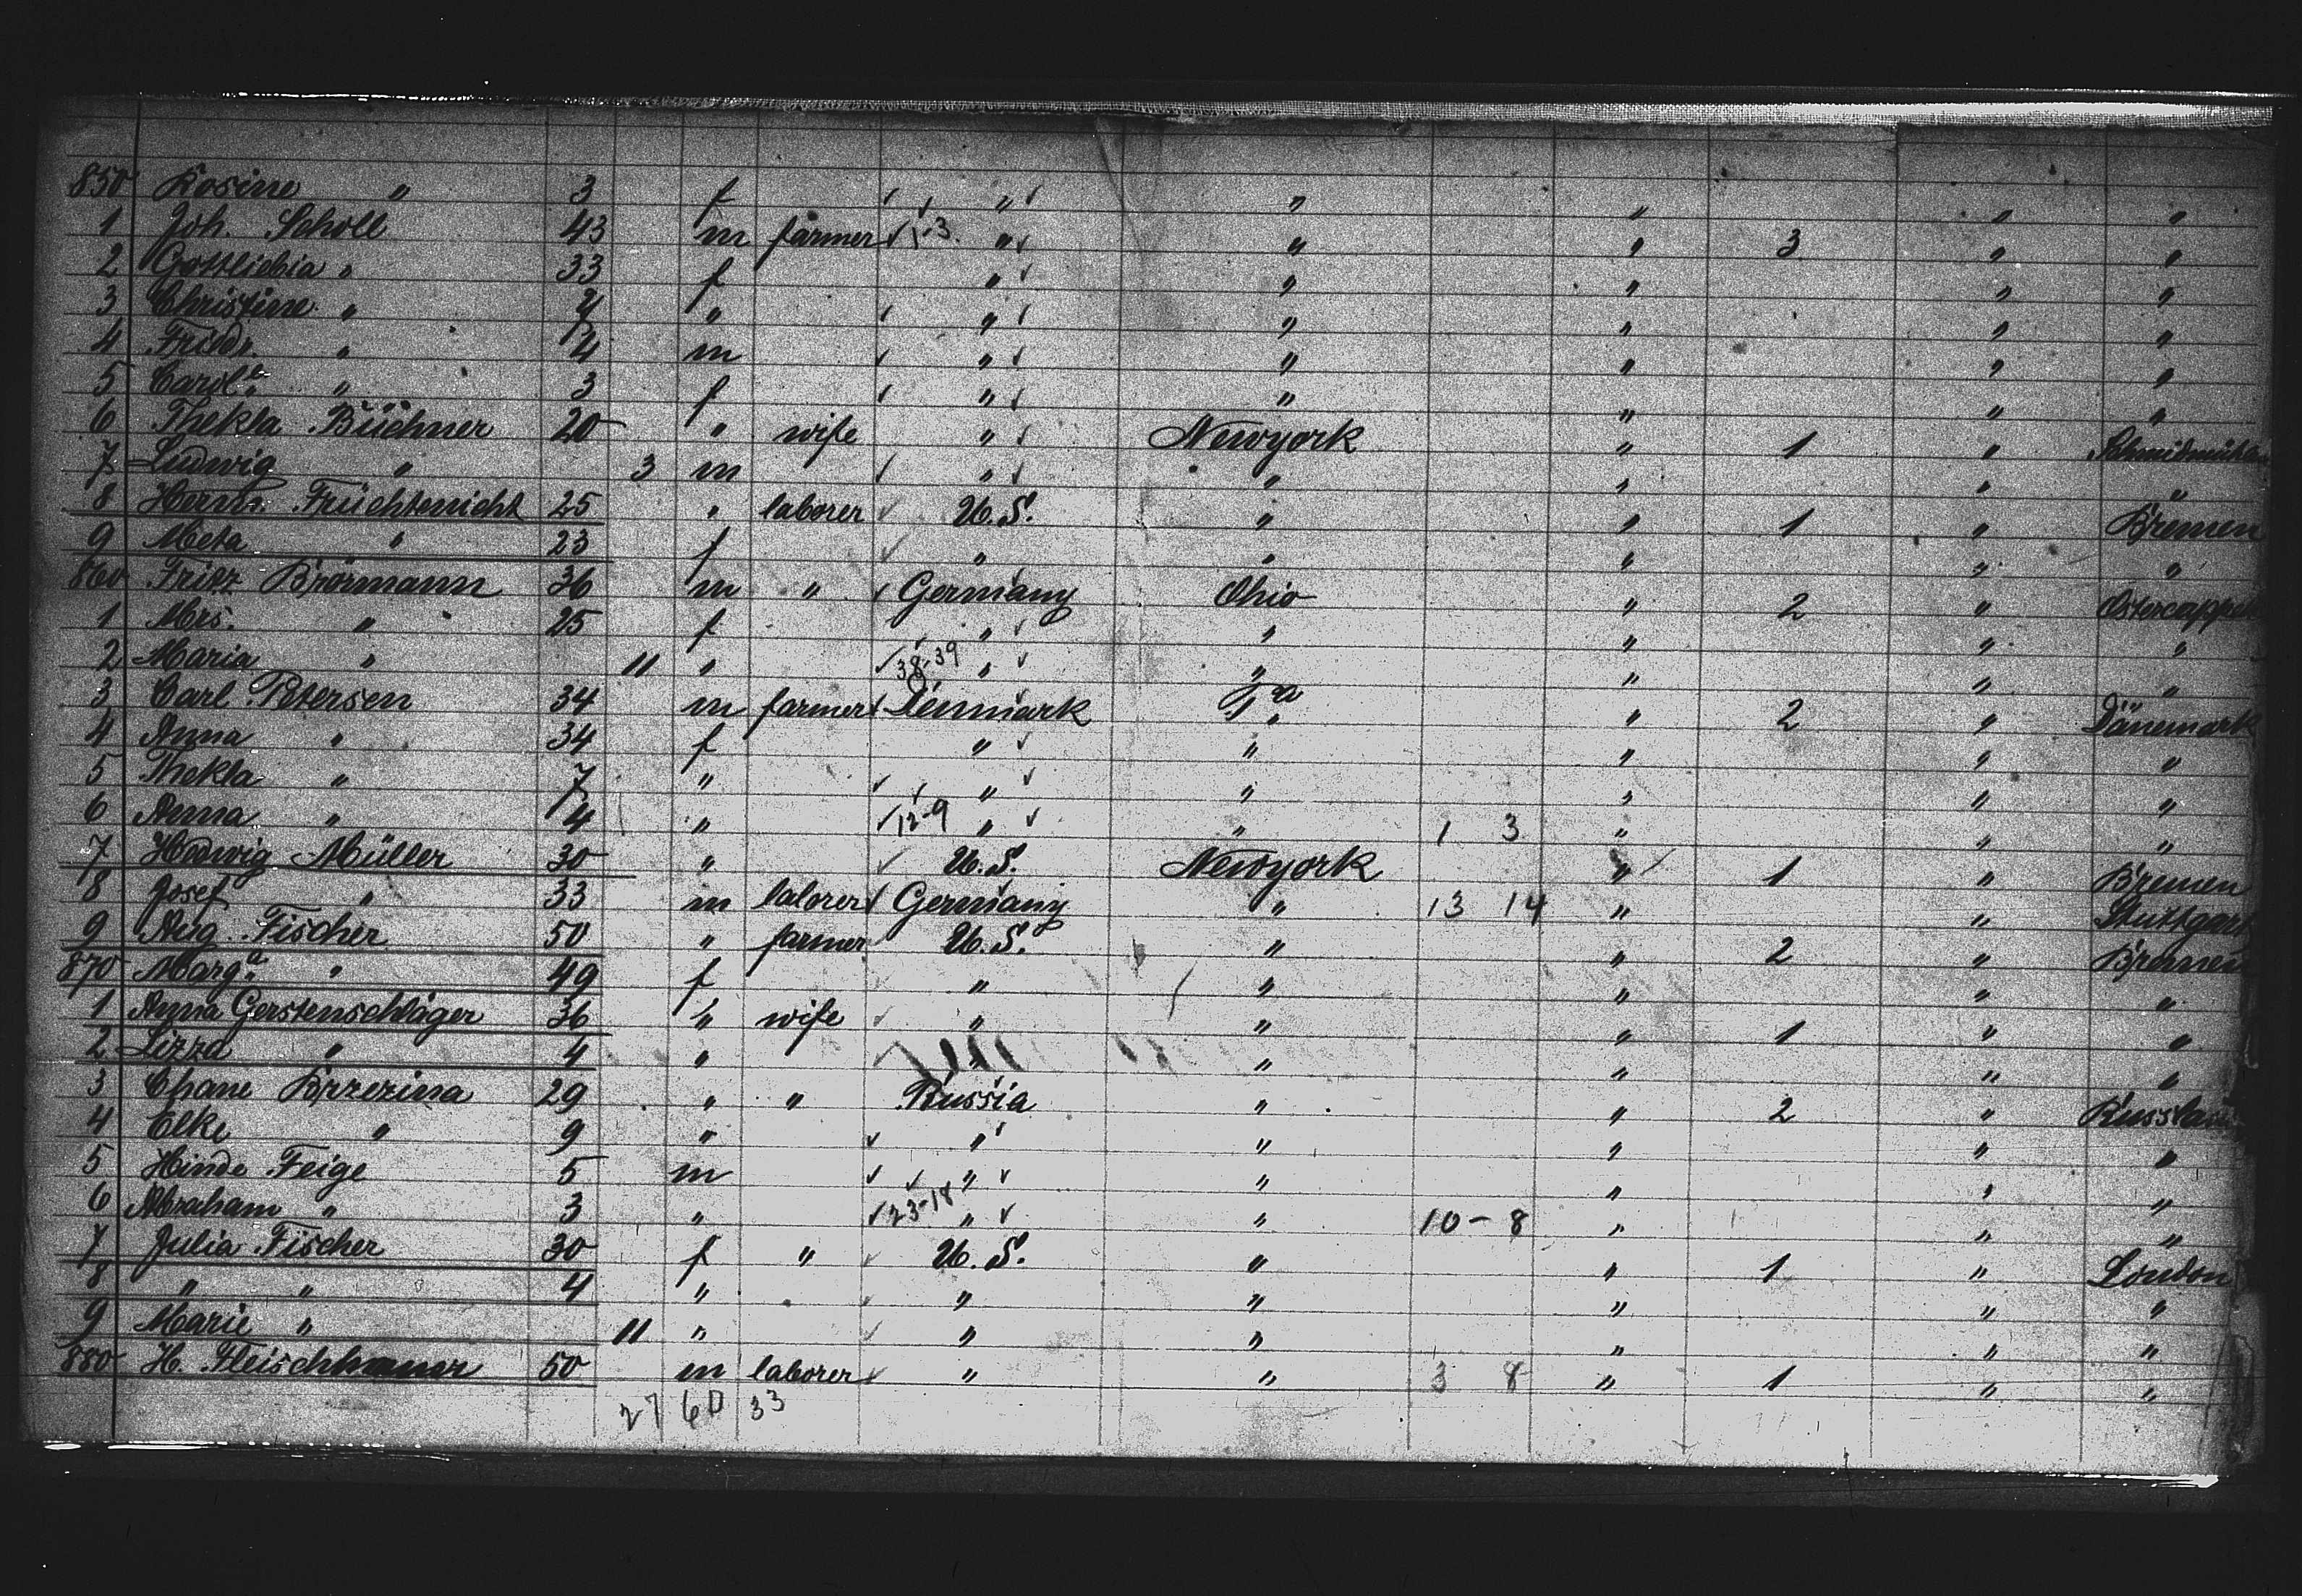 850 Rosine " 3 f " " " "  "
1 Joh. Scholl 43 m farmer 1-3. " " " 3 " "
2 Gottliebia " 33 f " " " " "
3 Christine " " " " " " "
4 Friedr. " 4 m " " " " "
5 Carol.e " 3 f " " " " "
6 Thekla Büchner 20 " wife " Newyork " 1 " Schmidmühlen
7 Ludwig " 3 m " " " " "
8 Herm. Früchtenicht 25 " laborer U.S. " " 1 " Bremen
9 Meta " 23 f " " " " "
860 Fritz Brörmann 36 m " Germany Ohio " 2 " Ostercappeln
1 Mrs. " 25 f " " " " "
2 Maria " 11 " 38-39 " " " " "
3 Carl Petersen 34 m farmer Denmark Pa " 2 " Dänemark
4 Anna " 34 f " " " " "
5 Thekla " 7 " " " " " "
6 Anna " 4 " 12-9 " " 1 3 " " "
7 Hedwig Müller 30 " U.S. Newyork " 1 " Bremen
8 Josef " 33 m laborer Germany " 13 14 " " Stuttgart
9 Aug. Fischer 50 " farmer U.S. " " 2 " Bremen
870 Marg.a " 49 f " " " " "
1 Anna Gerstenschläger 36 " wife " " " 1 " "
2 Lizza " 4 " " " " "
3 Chane Brzezina 29 " " Russia " " 2 " Russland
4 Elke " 9 " " " " " "
5 Hinde Feige 5 m " " " " "
6 Abraham " 3 " 23-18 " " 10-8 " " "
7 Julia Fischer 30 f " U.S. " " 1 " London
8 " " 4 " " " " " "
9 Marie " 11 " " " " " "
880 H. Fleischhauer 50 m laborer " " 3 8 " 1 " "
27 60 33